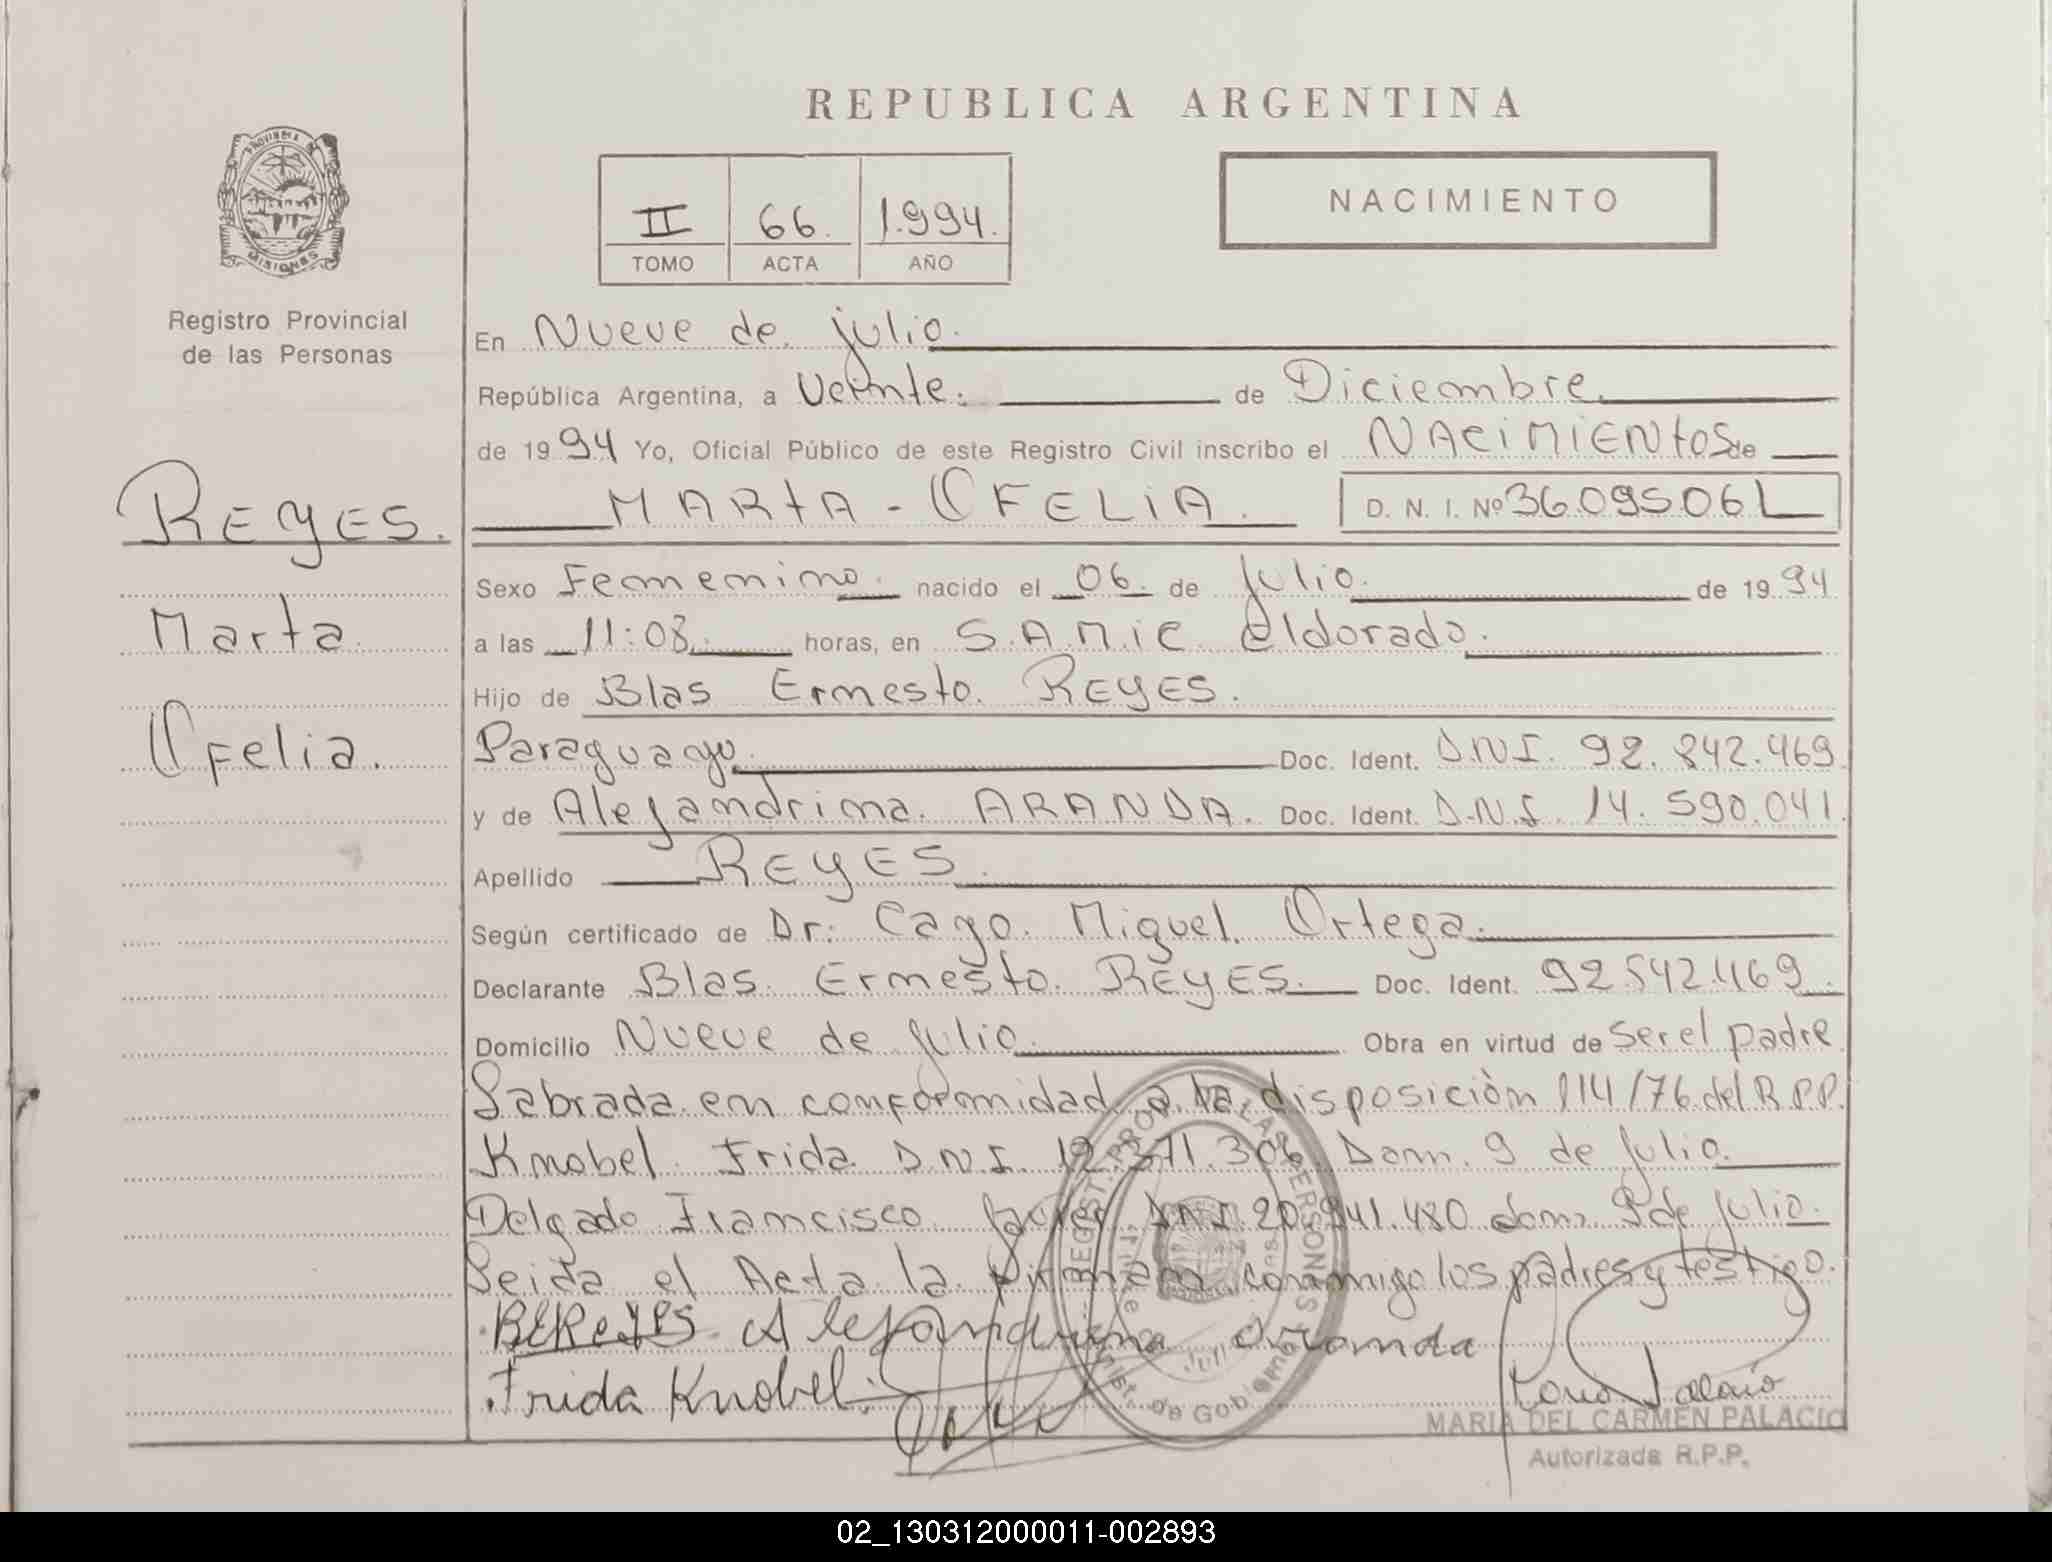 REPUBLICA ARGENTINA
PROVINCIA DE MISIONES
Registro Provincial
de las Personas
II 66. 1.994.
TOMO ACTA AÑO
NACIMIENTO
REYES.
Marta
Ofelia.
En Nueve de julio.
República Argentina, a Veinte. de Diciembre.
de 1994 Yo, Oficial Público de este Registro Civil inscribo el NACIMIENtOS de
MARtA - OFELIA. D. N. I. Nº
Sexo Femenino. nacido el 06. de Julio. de 1994
a las 11:08. horas, en S.A.M.i.C. eldorado.
Hijo de Blas Ernesto. REYES.
Paraguayo. Doc. Ident. D.N.I. 92.842.469
y de Alejandrina. ARANDA. Doc. Ident. D.N.I. 14.590.041.
Apellido REYES.
Según certificado de Dr: Cayo. Miguel. Ortega.
Declarante Blas. Ernesto. REYES. Doc. Ident. 92.542.469.
Domicilio Nueve de Julio. Obra en virtud de Ser el padre
Labrada en conformidad a la disposición 114/76 del R.P.P.
Knobel Frida D.N.I. 12.371.306 Dom. 9 de Julio.
Delgado Francisco Javier D.N.I. 20.941.480 dom. 9 de Julio.
Leida el Acta la firman conmigo los padres y testigo.
B.E.Reyes. Alejandrina Aranda
Frida Knobel.
MARIA DEL CARMEN PALACIO
Autorizada R.P.P.
02_130312000011-002893